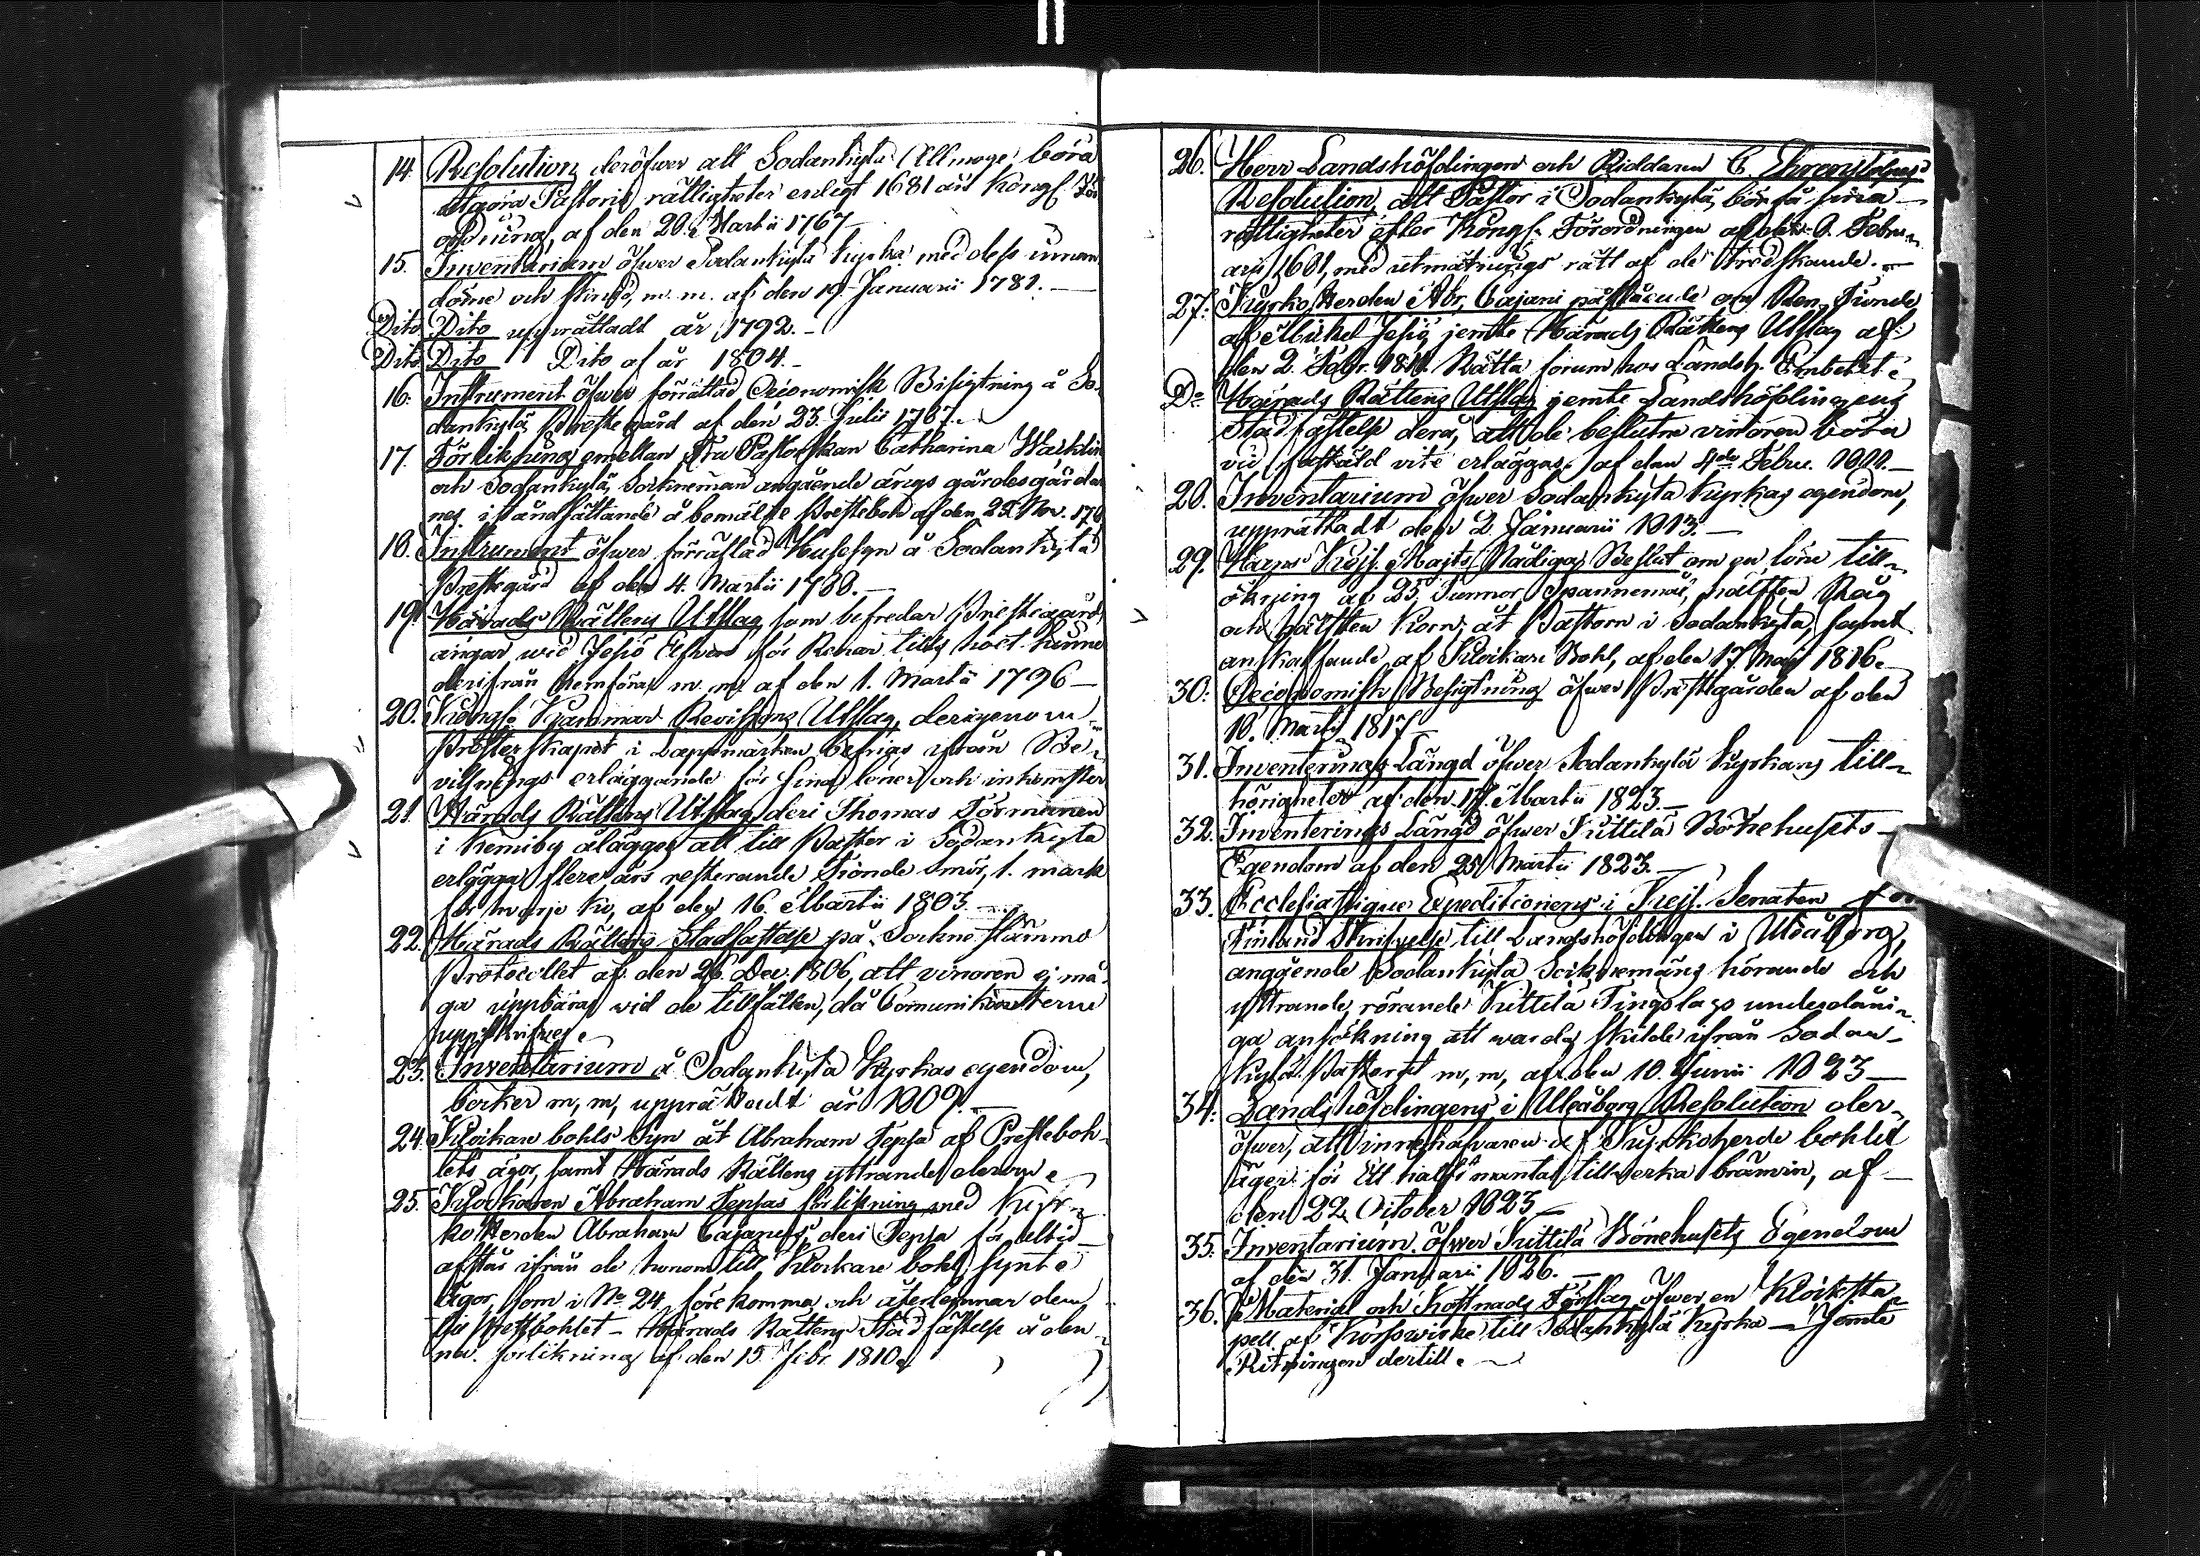 14. Resolution, deröfwer att Sodankylä Allmoge, böra
utgöra Pastoris rättigheter enligt 1681 års Kongl. För
ordning, af den 20. Martii 1767
15. Inventarium öfwer Sodankylä kyrka med dess innan
döme och skrud, m. m. af den 19. Januarii 1781.
Dito Dito upprättadt år 1792.
Dito Dito Dito af år 1804.
16. Instrument öfwer förrättad Oeconomisk Besigtning å So-
dankylä Prestegård af den 23. Julii 1787.
17. Förlikning emellan Fru Pastorskan Catharina
och Sodankylä Sockneman angående ängs gärdesgårdar
nes iståndsättande å bemälte Prestebohl af den 25 Nov.
18. Instrument öfwer förrättad Husesyn å Sodankylä
Prestegård af den 4. Martii 1788.
19. Härads Rättens Utslag som befredar Prestegårds
ängar wid Jesiö Elfwen för Renar tills höet hunne
derifrån hemföras m. m. af den 1. Martii 1796
20. Kongl. Kammar Revisions Utslag, derigenom
Presterskapet i Lappmarken befrias ifrån Be-
villnings erläggande för sina löner och inkomster
21. Härads Rättens Utslag deri Thomas Törmänen
i Kemiby ålägges att till Pastor i Sodankylä
erlägga flere års resterande Tionde smör, 1. mark
för hvarje ko, af den 16. Martii 1803.
22. Härads Rättens Stadfästelse på Sockne stämmo
Protocollet af den 26. Dec. 1806, att vinoren ej må-
ga uppbäras wid de tillfällen, då Communikanterne
uppskrifwes.
23. Inventarium å Sodankylä Kyrkas egendom,
böcker m, m, upprättadt år 1809.
24. Klockare bohls Syn åt Abraham Tepsa af Presteboh-
lets ägor, samt Härads Rättens yttrande derom
25. Klockaren Abraham Tepsas förlikning med Kyr-
koherden Abraham Cajanus, deri Tepsa för alltid
afstår ifrån de honom till Klockare bohl synte
ägor, som i No 24 förekomma och återlemnar dem
till Prestbohlet – Härads Rättens Stadfästelse å den-
na förlikning af den 15. Febr. 1810.
26. Herr Landshöfdingen och Riddaren C. Ehrenstolpes
Resolution, att Pastor i Sodankylä, bör få sina
rättigheter efter Kongl. Förordningen af den 3. Febru-
arii 1681, med utmätnings rätt af de tredskande.
27. Kyrkoherden Abr. Cajani påstående om Ren Tionde
af Mickel Jesiö jemte Härads Rättens Utslag af
den 2. Febr. 1811. Rätta forum hos Landsh. Embetet
Do Härads Rättens Utslag jemte Landshöfdingens
Stadfästelse derå, att de beslutne vinoren böra
vid förestäld vite erläggas, af den 4de Febru. 1811.
28. Inventarium öfwer Sodankylä Kyrkas egendom,
upprättadt den 2 Januarii 1813.
29. Hans Kejs. Majts Nådiga Beslut om en löne till-
ökning af 25 Tunnor Spannemål, hälften Råg
och hälften Korn, åt Pastorn i Sodankylä, samt
anskaffande af Klockare Bohl, af den 17. Maji 1816.
30. Oeconomisk Besigtning öfwer Prestgården af den
10. Martii 1817
31. Inventerings Längd öfwer Sodankylä Kyrkans till-
hörigheter af den 17. Martii 1823.
32. Inventerings Längd öfwer Kittilä Bönehusets
Egendom af den 25 Martii 1823.
33. Ecclesiastique Expeditionens i Kejs. Senaten för
Finland Skrifvelse till Landshöfdingen i Uleåborg,
angående Sodankylä Socknemäns hörande och
yttrande, rörande Kittilä Tingslags underdåni-
ga ansökning att warda skilde ifrån Sodan-
kylä Pastorat m, m, af den 10. Junii 1823
34. Landshöfdingens i Uleåborg Resolution der-
öfwer, att innehafwaren af Kyrkoherde bohlet
äger för ett halft mantal tillverka bränvin, af
den 22 October 1823
35. Inventarium öfwer Kittilä Bönehusets Egendom
af den 31. Januarii 1826.
36. Material och Kostnads Förslag öfwer en Klocksta-
pell af Korsswirke till Sodankylä Kyrka – jemte
Ritningen dertill.